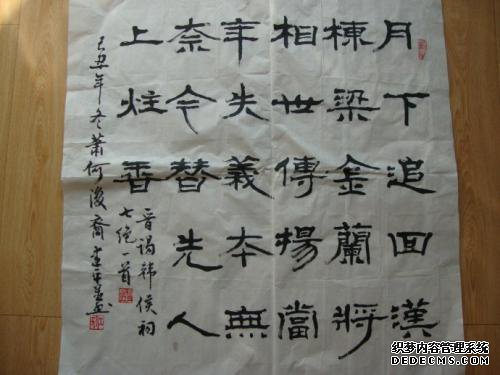 月下追回漢
棟梁金蘭將
相世傳楊當
年失義本無
奈今替先人
上炷香
晋謁韩侯祠
七绝一首
己丑年冬蕭何後裔
织梦内容管理系统
DEDECMS.COM